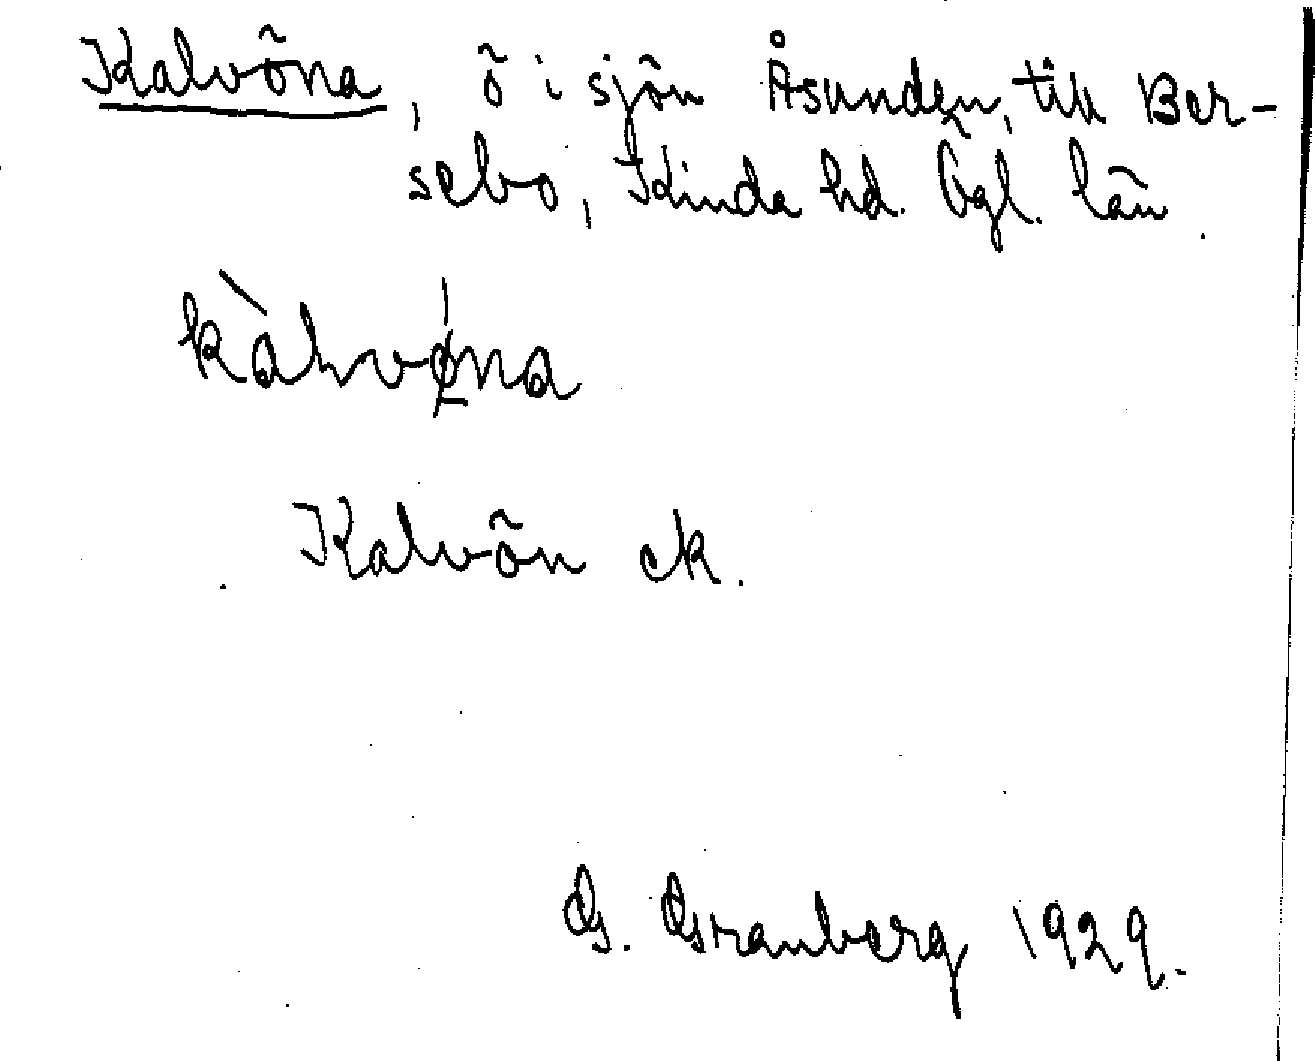 Kalvöna, ö i sjön Åsunden, till Ber-
sebo, Kinda hd. Ögl. län.
kàlvǿ̨na
Kalvön ek.
G. Granberg 1929.